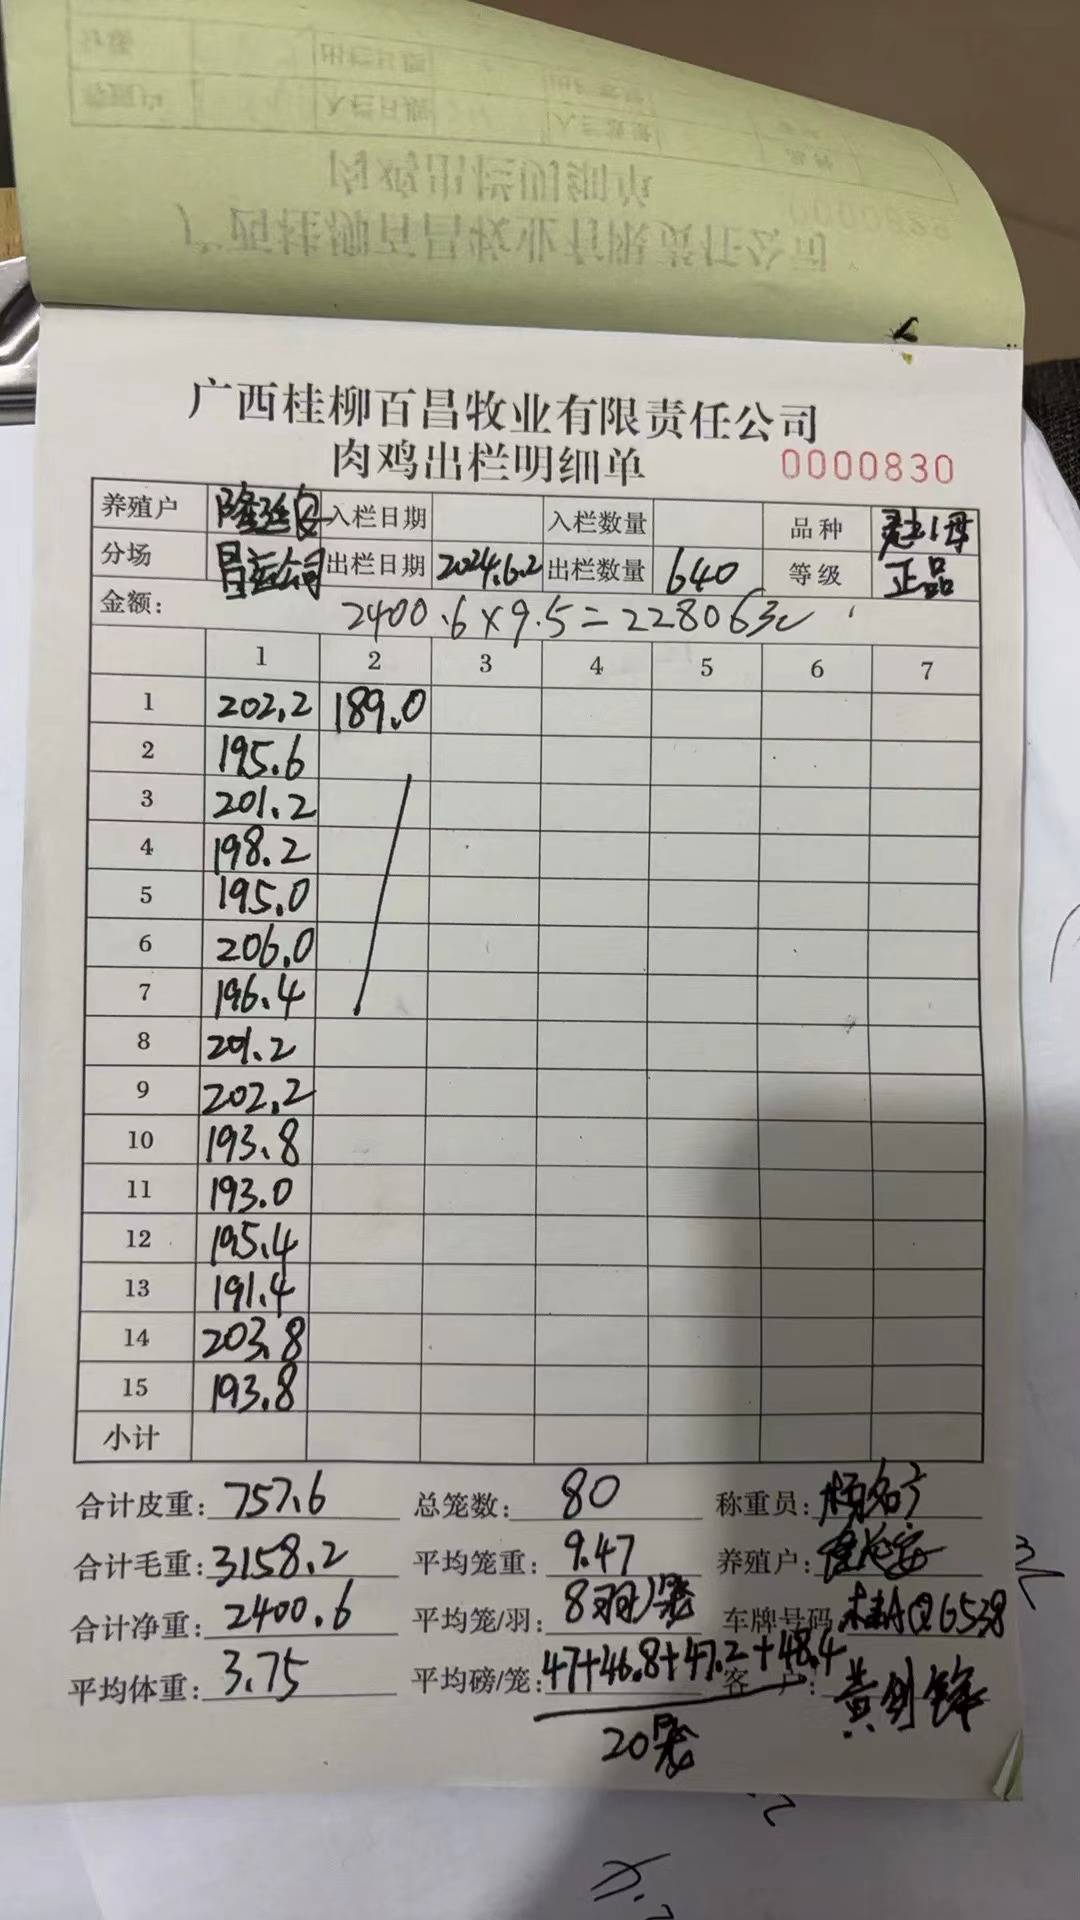 广西桂柳百昌牧业有限责任公司
肉鸡出栏明细单 0000830
养殖户 入栏日期 入栏数量 品种
分场 出栏日期 2024.6.2 出栏数量 640 等级 正品
金额: 2400.6×9.5=22806元
1 2 3 4 5 6 7
1 202.2 189.0
2 195.6
3 201.2
4 198.2
5 195.0
6 206.0
7 196.4
8 201.2
9 202.2
10 193.8
11 193.0
12 195.4
13 191.4
14 203.8
15 193.8
小计
合计皮重: 757.6 总笼数: 80 称重员:
合计毛重: 3158.2 平均笼重: 9.47 养殖户:
合计净重: 2400.6 平均笼/羽: 8羽/ 车牌号码: 桂AQ6538
平均体重: 3.75 平均磅/笼: 47+46.8+47.2+48.4 客户: 黄剑锋
20